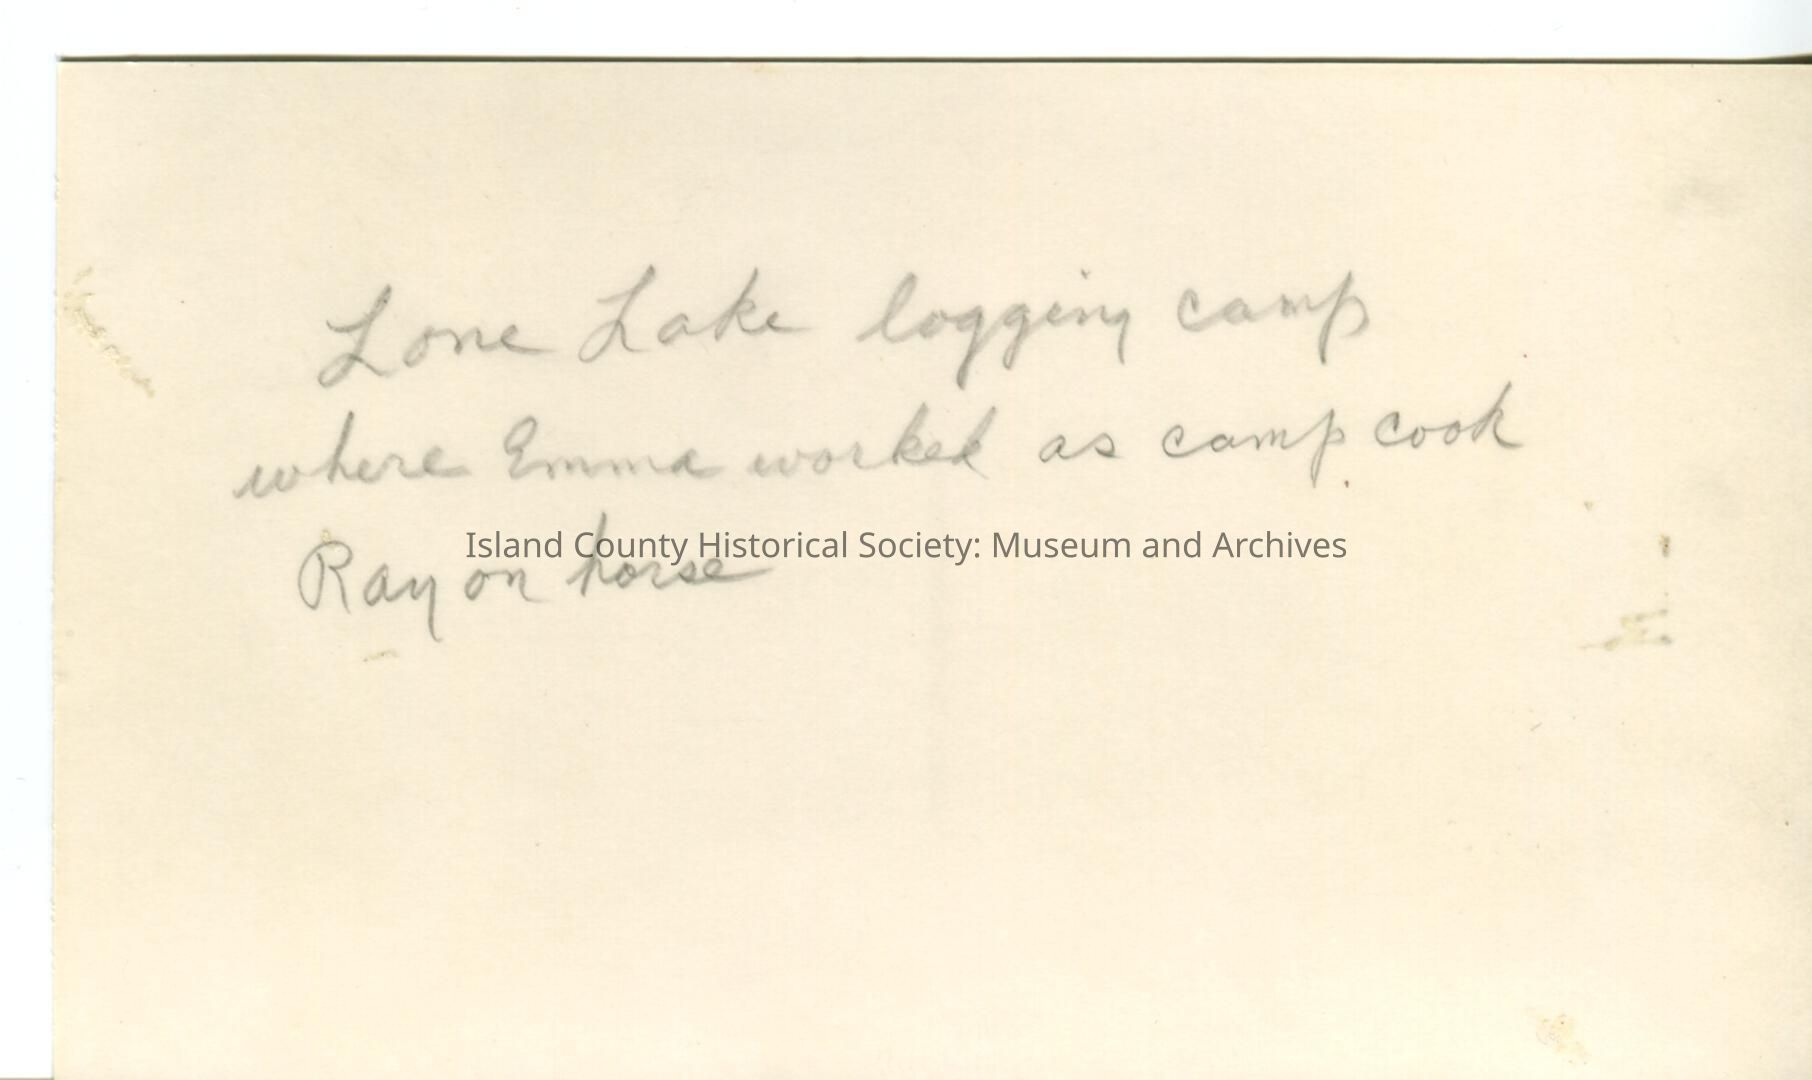 Lone Lake logging camp
where Emma worked as camp cook
Island County Historical Society: Museum and Archives
Ray on horse